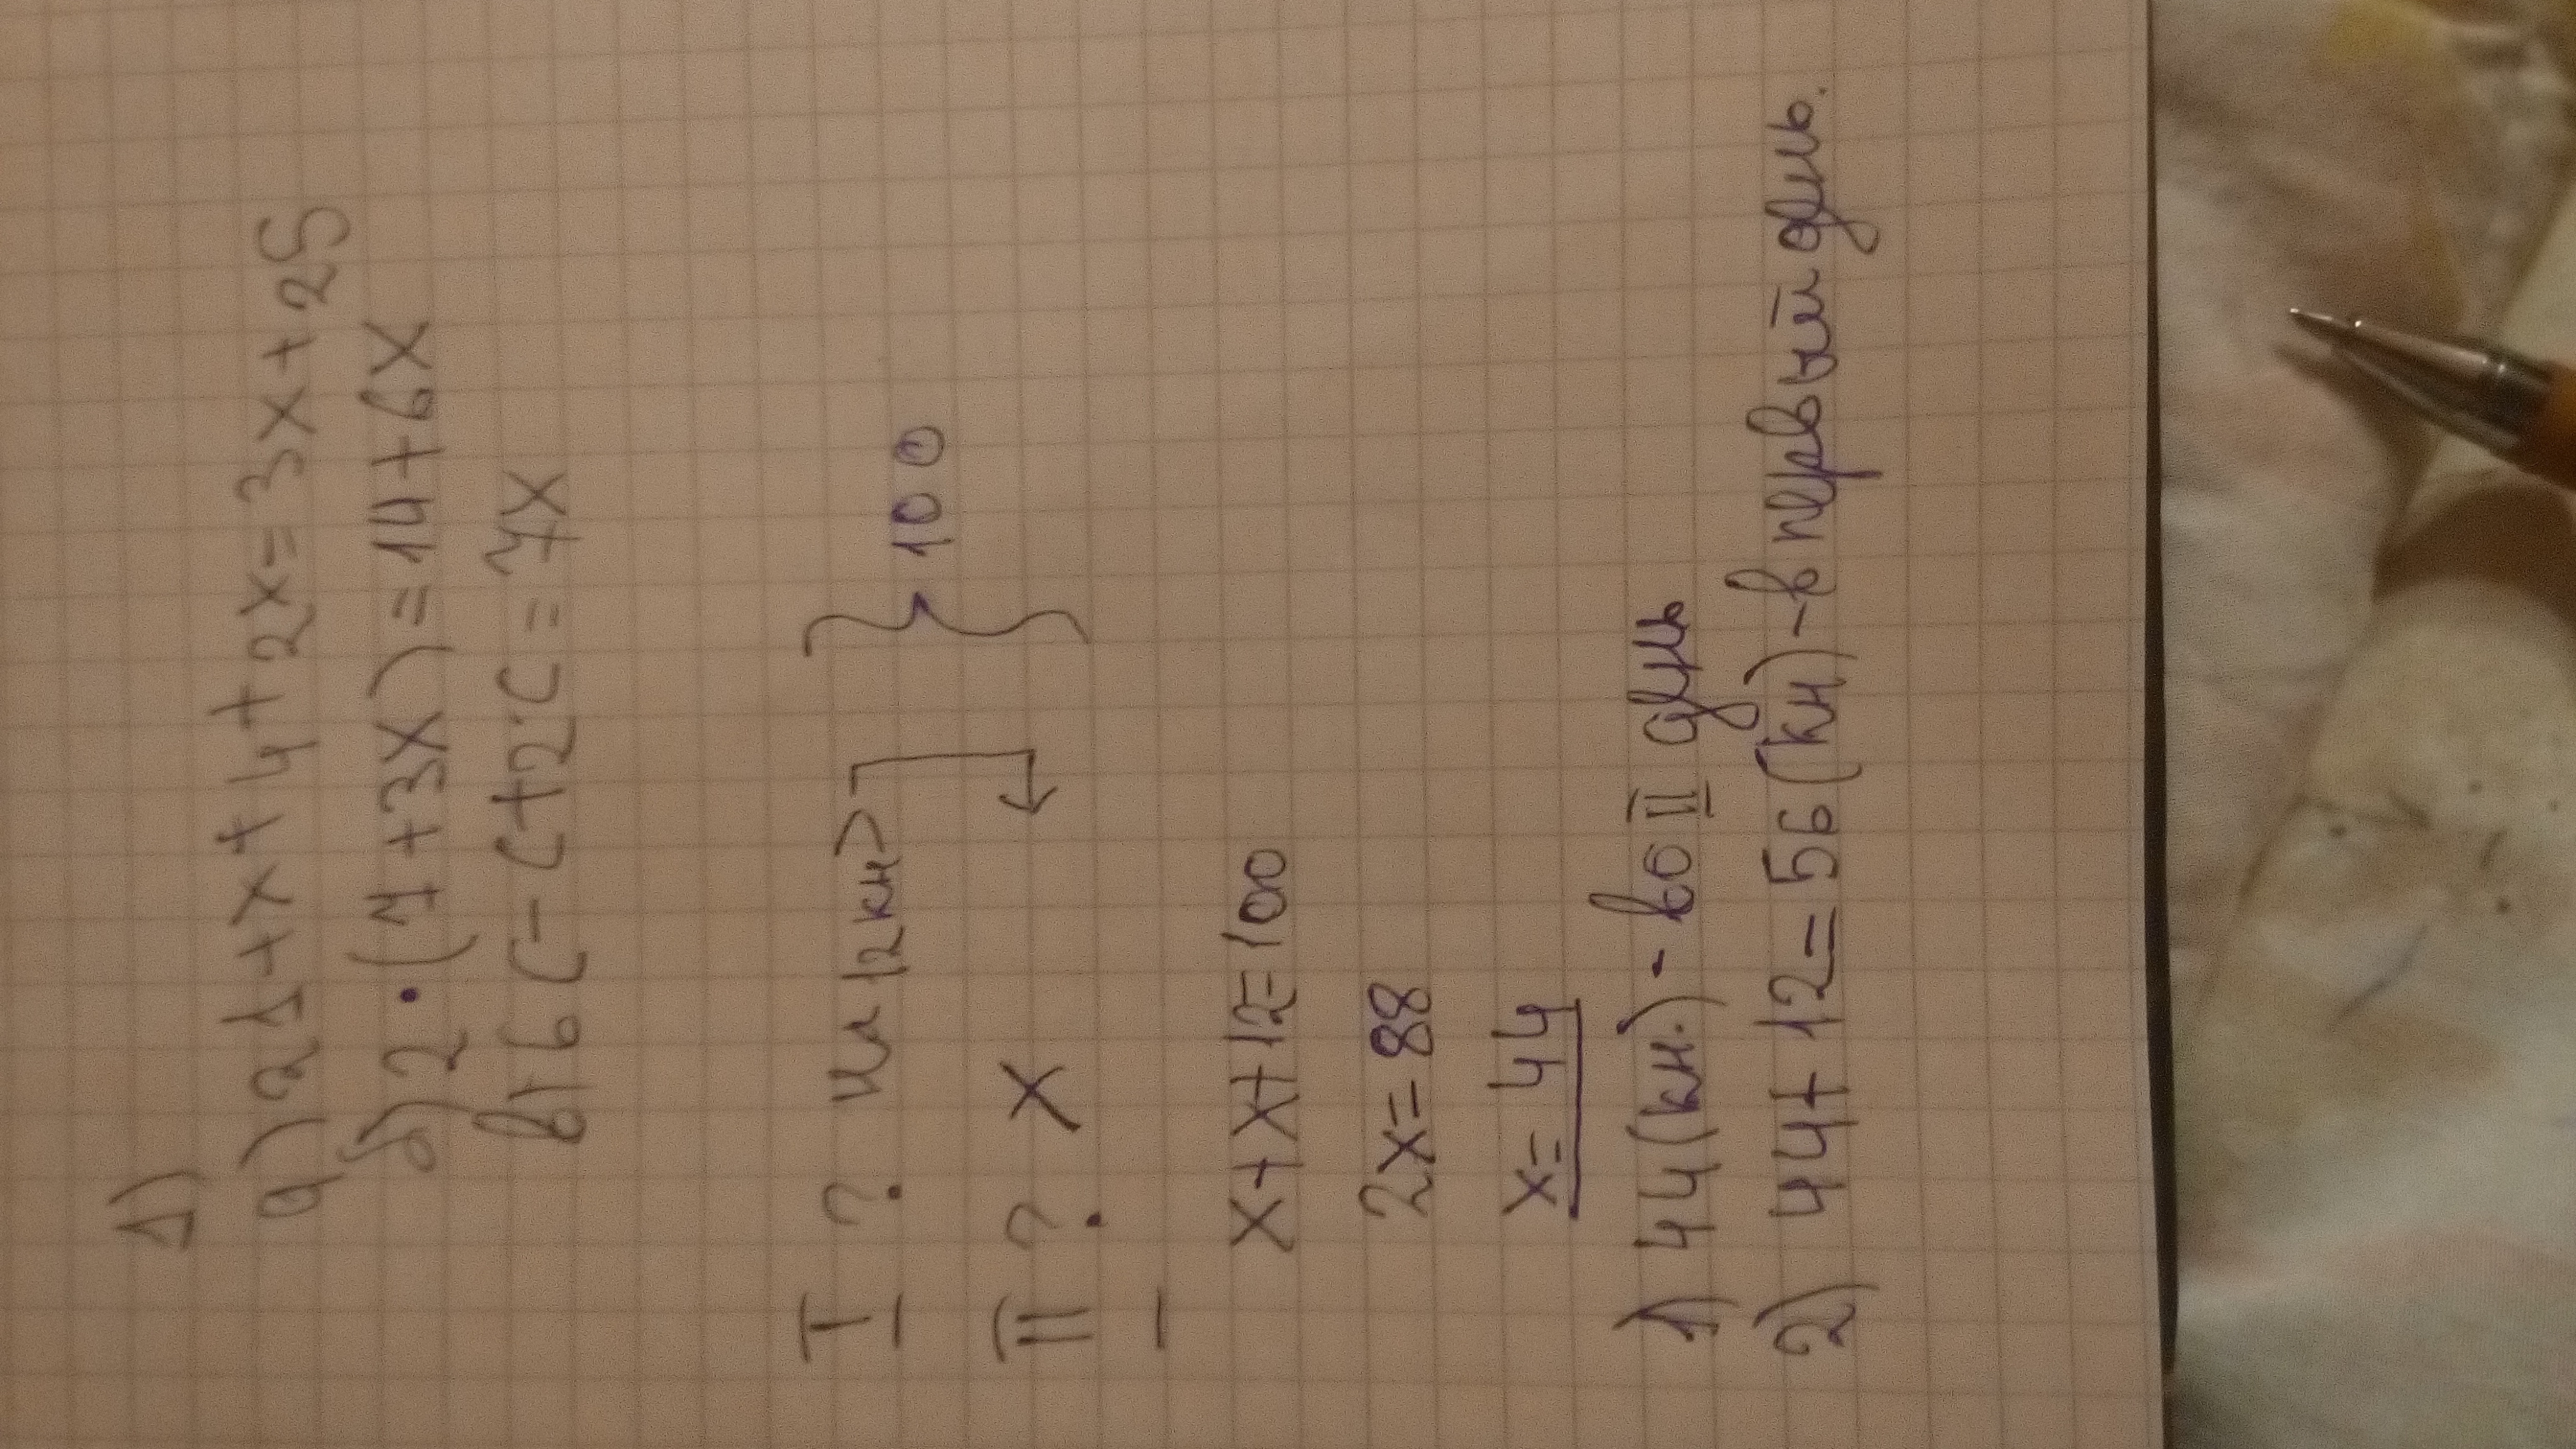 1)
а) 21+x+4+2x=3x+25
б) 2·(7+3x)=14+6x
в) 6c-c+2c=7x
I ? на 12 кн>
} 100
II ? x
x+x+12=100
2x=88
x=44
1) 44 (кн.) - во II день
2) 44+12=56 (кн) - в первый день.